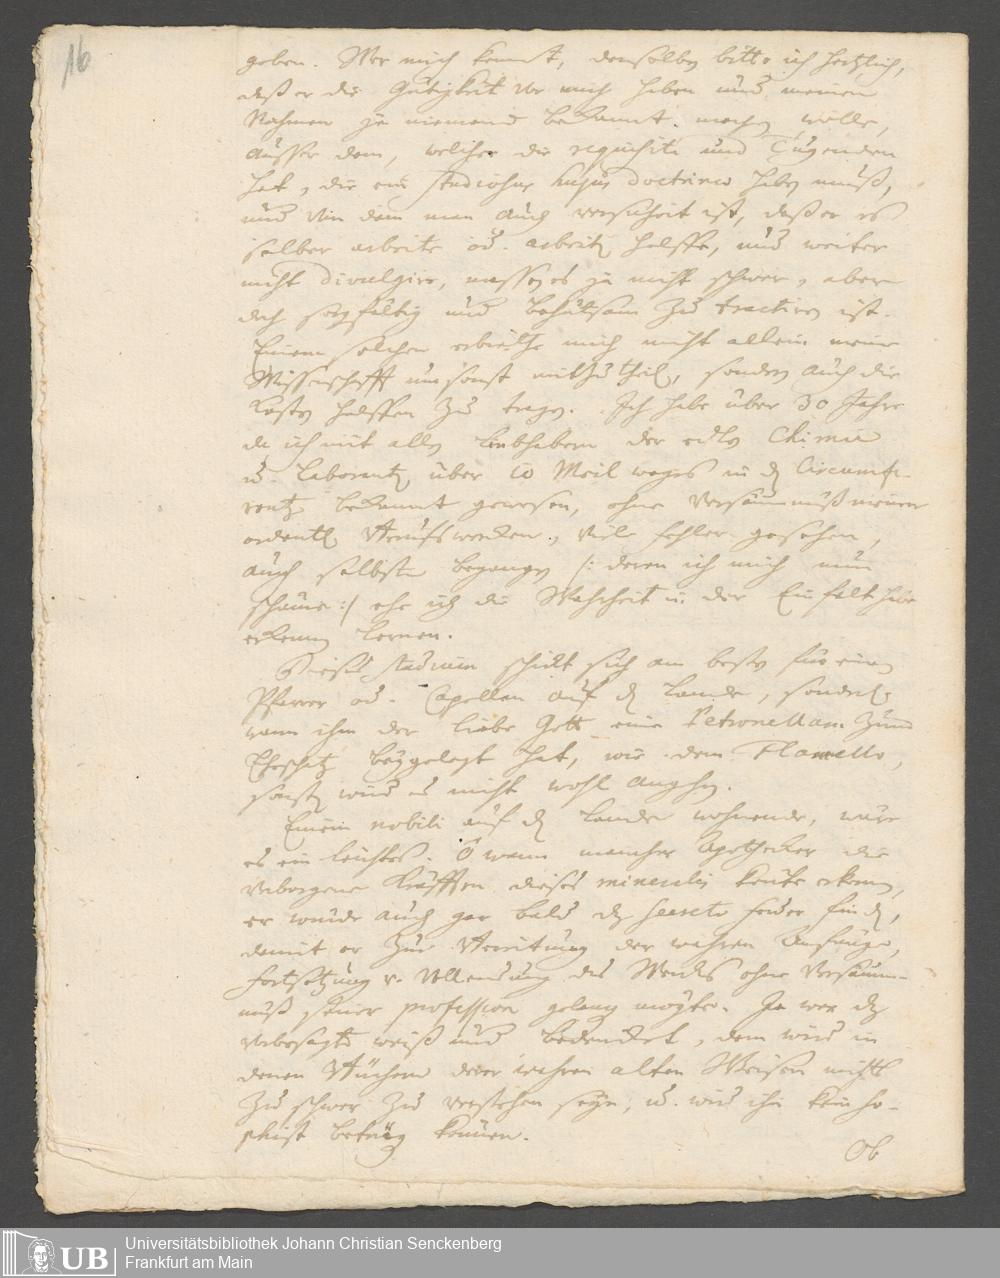 16
geben. Wer mich kennt, denselben bitte ich hertzlich,
daß er die Gütigkeit vor mich haben und meinen
Nahmen ja niemand bekannt machen wolle,
ausser dem, welcher die requisita und Tugenden
hat, die ein studiosus hujus doctrinae haben muß,
und von dem man auch versichert ist, daß er es
selber arbeite od. arbeiten helffe, und weiter
nicht divulgire, massen es ja nicht schwer, aber
doch sorgfältig und behutsam zu tractiren ist.
Einem solchen erbiethe mich nicht allein meine
Wissenschafft umsonst mitzutheilen, sondern auch die
Kosten helffen zu tragen. Ich habe über 30 Jahre
da ich mit allen Liebhabern der edlen Chimie
u. Laboranten über 10 Meil weges in der Circumfe-
rentz bekannt gewesen, ohne Versäumnuß meiner
ordentl. Berufswercken, viele fehler gesehen,
auch selbsten begangen /: deren ich mich nun
schäme :/ ehe ich die Wahrheit u. der Einfalt habe
erkennen lernen.
Dieses studium schickt sich am besten für einen
Pfarrer od. Capellan auf dem Lande, sonderl.
wann ihm der liebe Gott eine Petronellam zum
Eheschatz beygelegt hat, wie dem Flamello,
sonsten wird es nicht wohl angehen.
Einem nobili auf dem Lande wohnende, wäre
es ein leichtes. O wann mancher Apothecker die
verborgene Kräfften dieses mineralis könte erkennen,
er würde auch gar bald das secretum finden,
damit er zur Bereitung der wahren Anfänge,
fortsetzung u. Vollendung des Wercks ohne Versäum-
nuß seiner profession gelangen mögte. Ja wer das
vorbesagte weiß und bedencket, dem wird in
denen Büchern derer wahren alten Weisen nichts
zu schwer zu verstehen seyn, u. wird ihn kein so-
phist betrügen können.
Ob
UB
Universitätsbibliothek Johann Christian Senckenberg
Frankfurt am Main